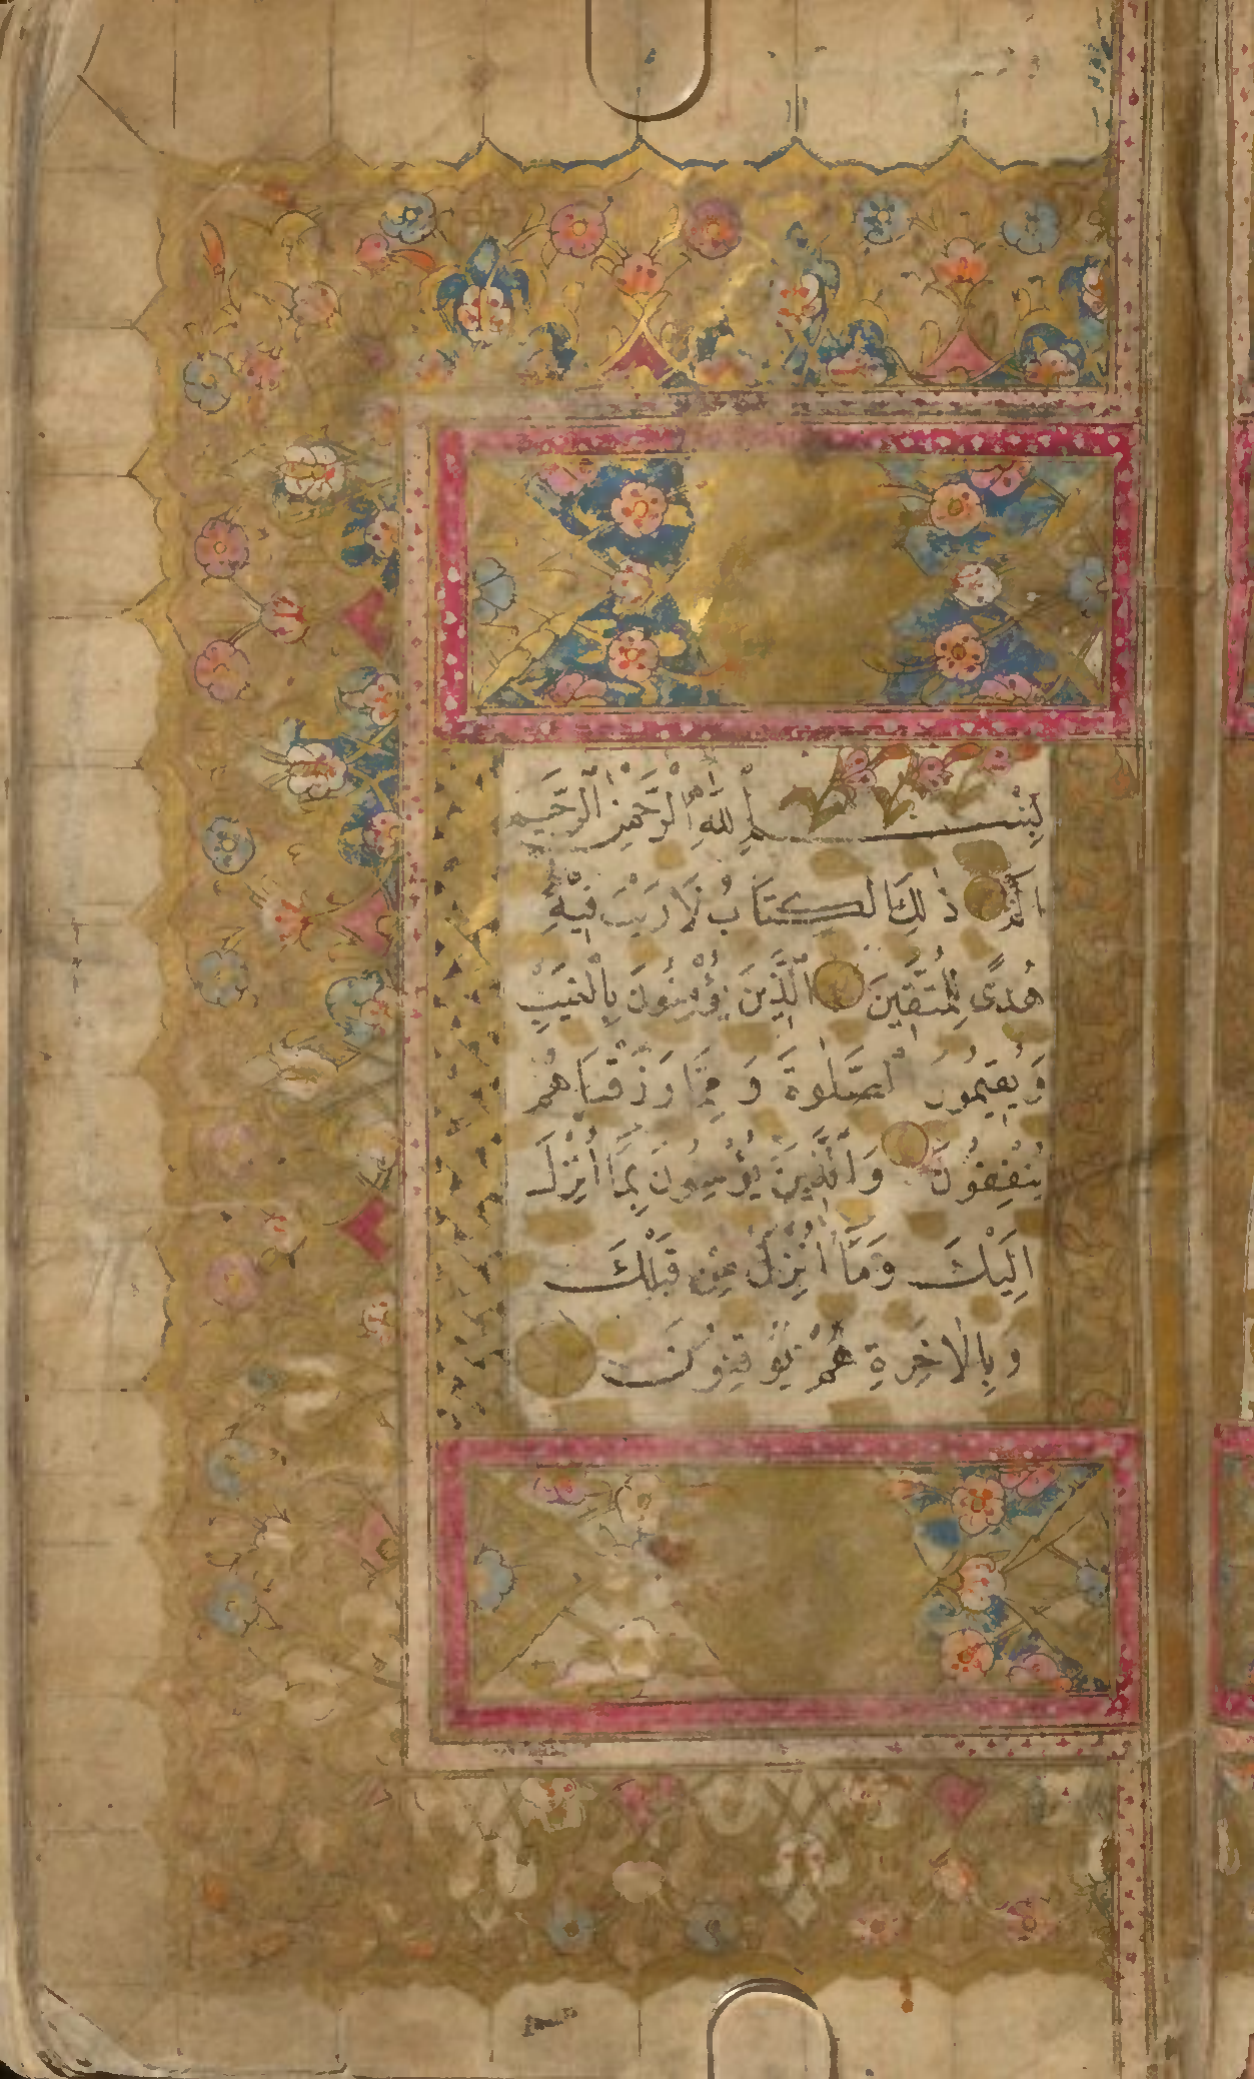 بِسْمِ اللّٰهِ الرَّحْمٰنِ الرَّحِيمِ
الٓمّٓ ذٰلِكَ الْكِتَابُ لَا رَيْبَ فِيهِ
هُدًى لِلْمُتَّقِينَ الَّذِينَ يُؤْمِنُونَ بِالْغَيْبِ
وَيُقِيمُونَ الصَّلٰوةَ وَمِمَّا رَزَقْنَاهُمْ
يُنْفِقُونَ وَالَّذِينَ يُؤْمِنُونَ بِمَا أُنْزِلَ
اِلَيْكَ وَمَا أُنْزِلَ مِنْ قَبْلِكَ
وَبِالْاٰخِرَةِ هُمْ يُوقِنُونَ